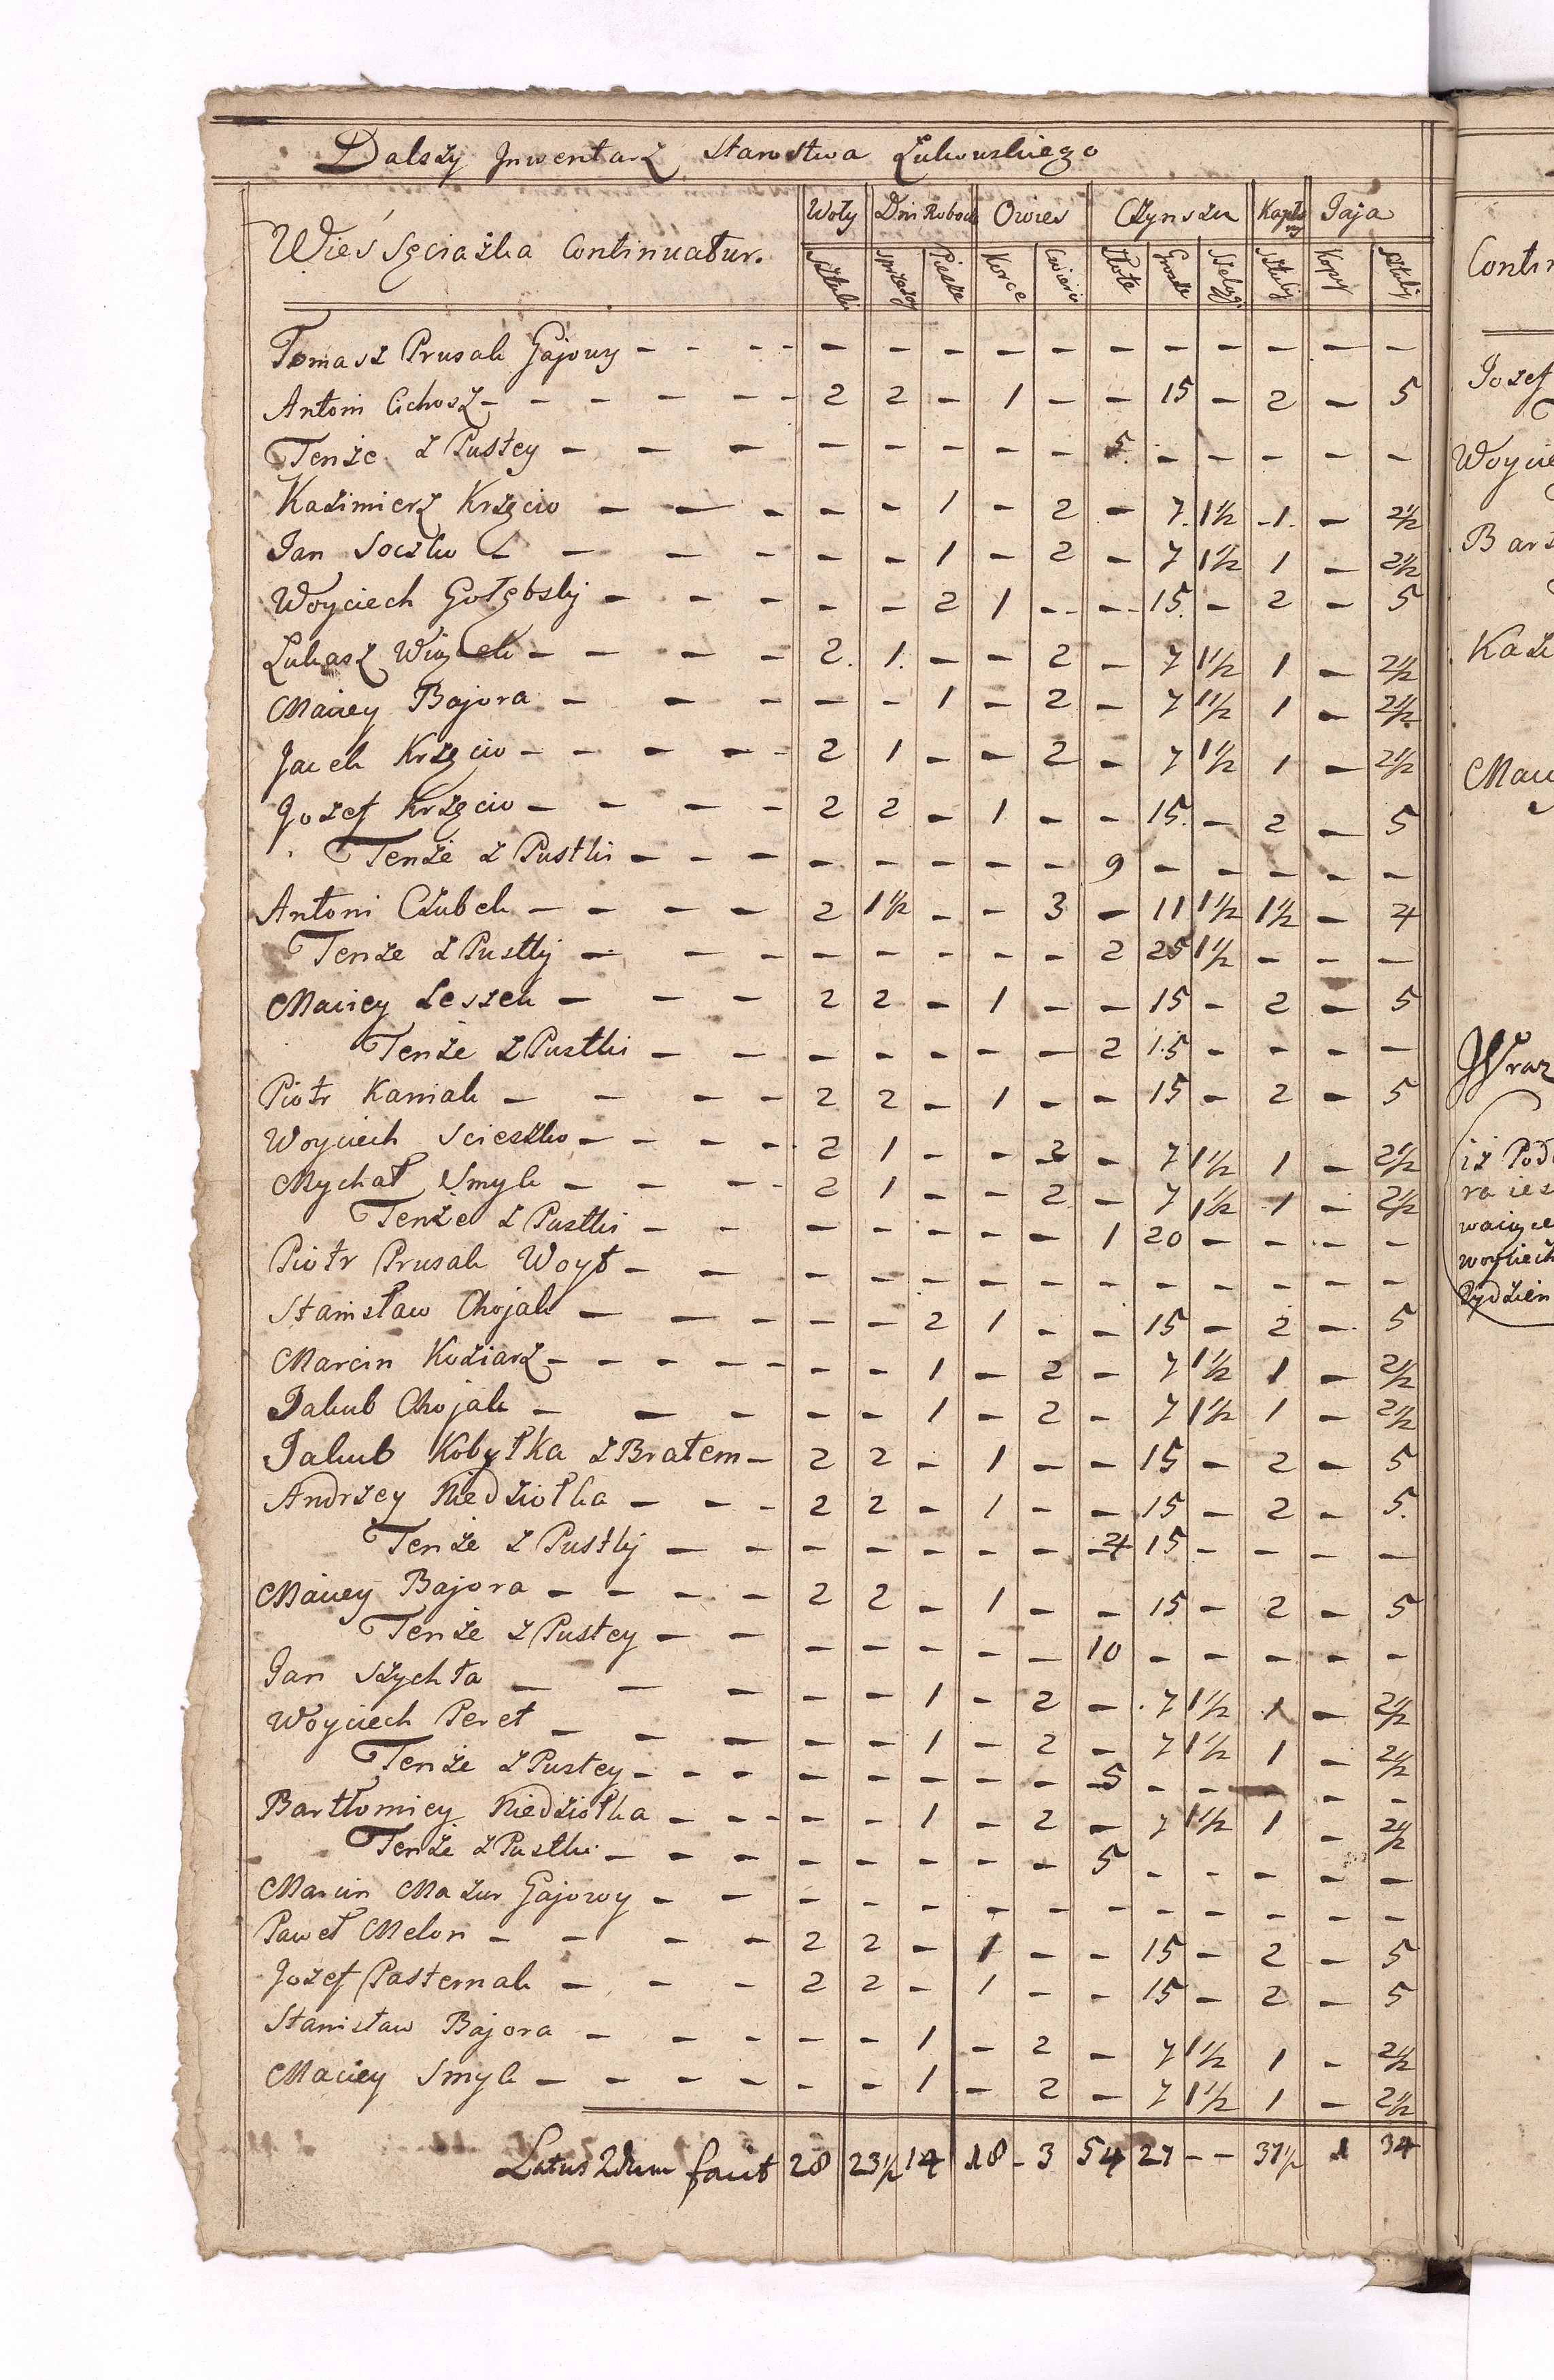 Dalszy Jnwentarz Starostwa Łukowskiego
Wieś Sęciaszka Continuatur.
Woły Dni Roboc Owies Czynszu Kapłony Jaja
Sztuki Sprzężay Piesze Korce Cwierci Złote Grosze Szelągi Sztuki Kopy Sztuki
Tomasz Prusak Gajowy - - - - - - - - - - - - - - -
Antoni Cichosz - - - - - - 2 2 - 1 - - 15 - 2 - 5
Tenże z Pustey - - - - - - - - - 5 - - - - -
Kazimierz Krzęcio - - - - - 1 - 2 - 7. 1½ -1. - 2½
Jan Soczko - - - - - - 1 - 2 - 7 1½ 1 - 2½
Woyciech Gołębsky - - - - - - 2 1 - - 15. - 2 - 5
Łukasz Wiącek - - - - 2. 1. - - 2 - 7 1½ 1 - 2½
Maciey Bajora - - - - - 1 - 2 - 7 1½ 1 - 2½
Jacek Krzęcio - - - - - 2 1 - - 2 - 7 1½ 1 - 2½
Jozef Krzęcio - - - - 2 2 - 1 - - 15. - 2 - 5
Tenże z Pustki - - - - - - - - - 9 - - - - -
Antoni Czubek - - - - 2 1½ - - 3 - 11 1½ 1½ - 4
Tenże z Pustky - - - - - - - - 2 25 1½ - - -
Maciey Leszek - - - 2 2 - 1 - - 15 - 2 - 5
Tenże z Pustki - - - - - - - 2 15 - - - -
Piotr Kaniak - - - - 2 2 - 1 - - 15 - 2 - 5
Woyciech Scieszko - - - - 2 1 - - 2 - 7 1½ 1 - 2½
Mychał Smyk - - - - 2 1 - - 2 - 7 1½ 1 - 2½
Tenże z Pustki - - - - - - - 1 20 - - - -
Piotr Prusak Woyt - - - - - - - - - - - - - -
Stanisław Chojak - - - - - - 2 1 - - 15 - 2 - 5
Marcin Koziarz - - - - - - - 1 - 2 - 7 1½ 1 - 2½
Jakub Chojak - - - - - 1 - 2 - 7 1½ 1 - 2½
Jakub Kobyłka z Bratem - 2 2 - 1 - - 15 - 2 - 5
Andrzey Niedziołka - - - 2 2 - 1 - - 15 - 2 - 5.
Tenże z Pustky - - - - - - - 4 15 - - - -
Maciey Bajora - - - - 2 2 - 1 - - 15 - 2 - 5
Tenże z Pustey - - - - - - - 10 - - - - -
Jan Szychta - - - - - 1 - 2 - 7 1½ 1 - 2½
Woyciech Peret - - - - - - 1 - 2 - 7 1½ 1 - 2½
Tenże z Pustey - - - - - - - - - 5 - - - - -
Bartłomiey Niedziołka - - - - - 1 - 2 - 7 1½ 1 - 2½
Tenże z Pustki - - - - - - - - - 5 - - - - -
Marcin Mazur Gajowy - - - - - - - - - - - - -
Paweł Melon - - - - 2 2 - 1 - - 15 - 2 - 5
Jozef Pasternak - - - 2 2 - 1 - - 15 - 2 - 5
Stanisław Bajora - - - - - - 1 - 2 - 7 1½ 1 - 2½
Maciey Smyk - - - - - - - 1 - 2 - 7 1½ 1 - 2½
Latus 2dum facit 28 23½ 14 18 - 3 54 27 - - 37½ 1 34
Contin
Jozef
Woycie
Bart
Kazi
Maci
Wraz
iż Podd
ra ies
waiące
woyciech
Tydzien